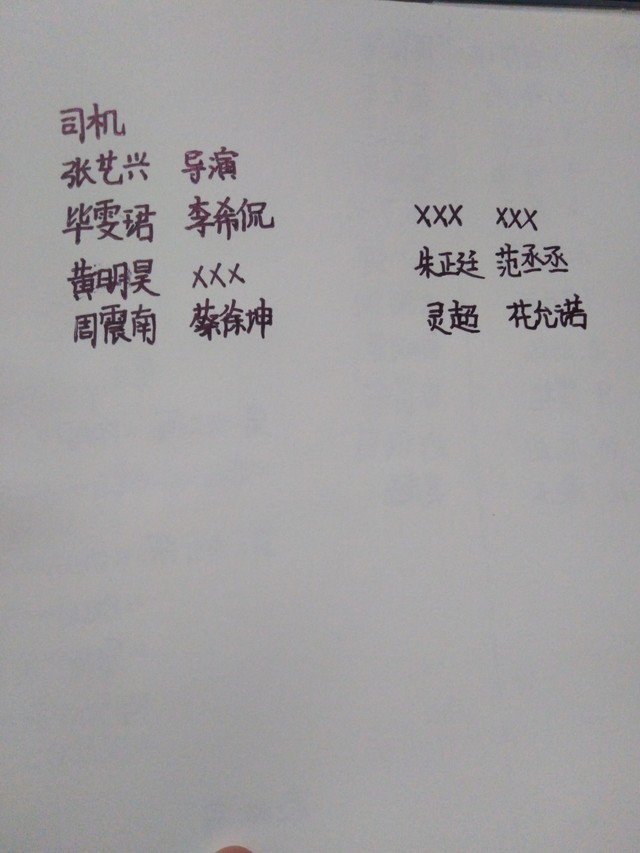 司机
张艺兴 导演
毕雯珺 李希侃 XXX XXX
黄明昊 XXX 朱正廷 范丞丞
周震南 蔡徐坤 灵超 花允诺